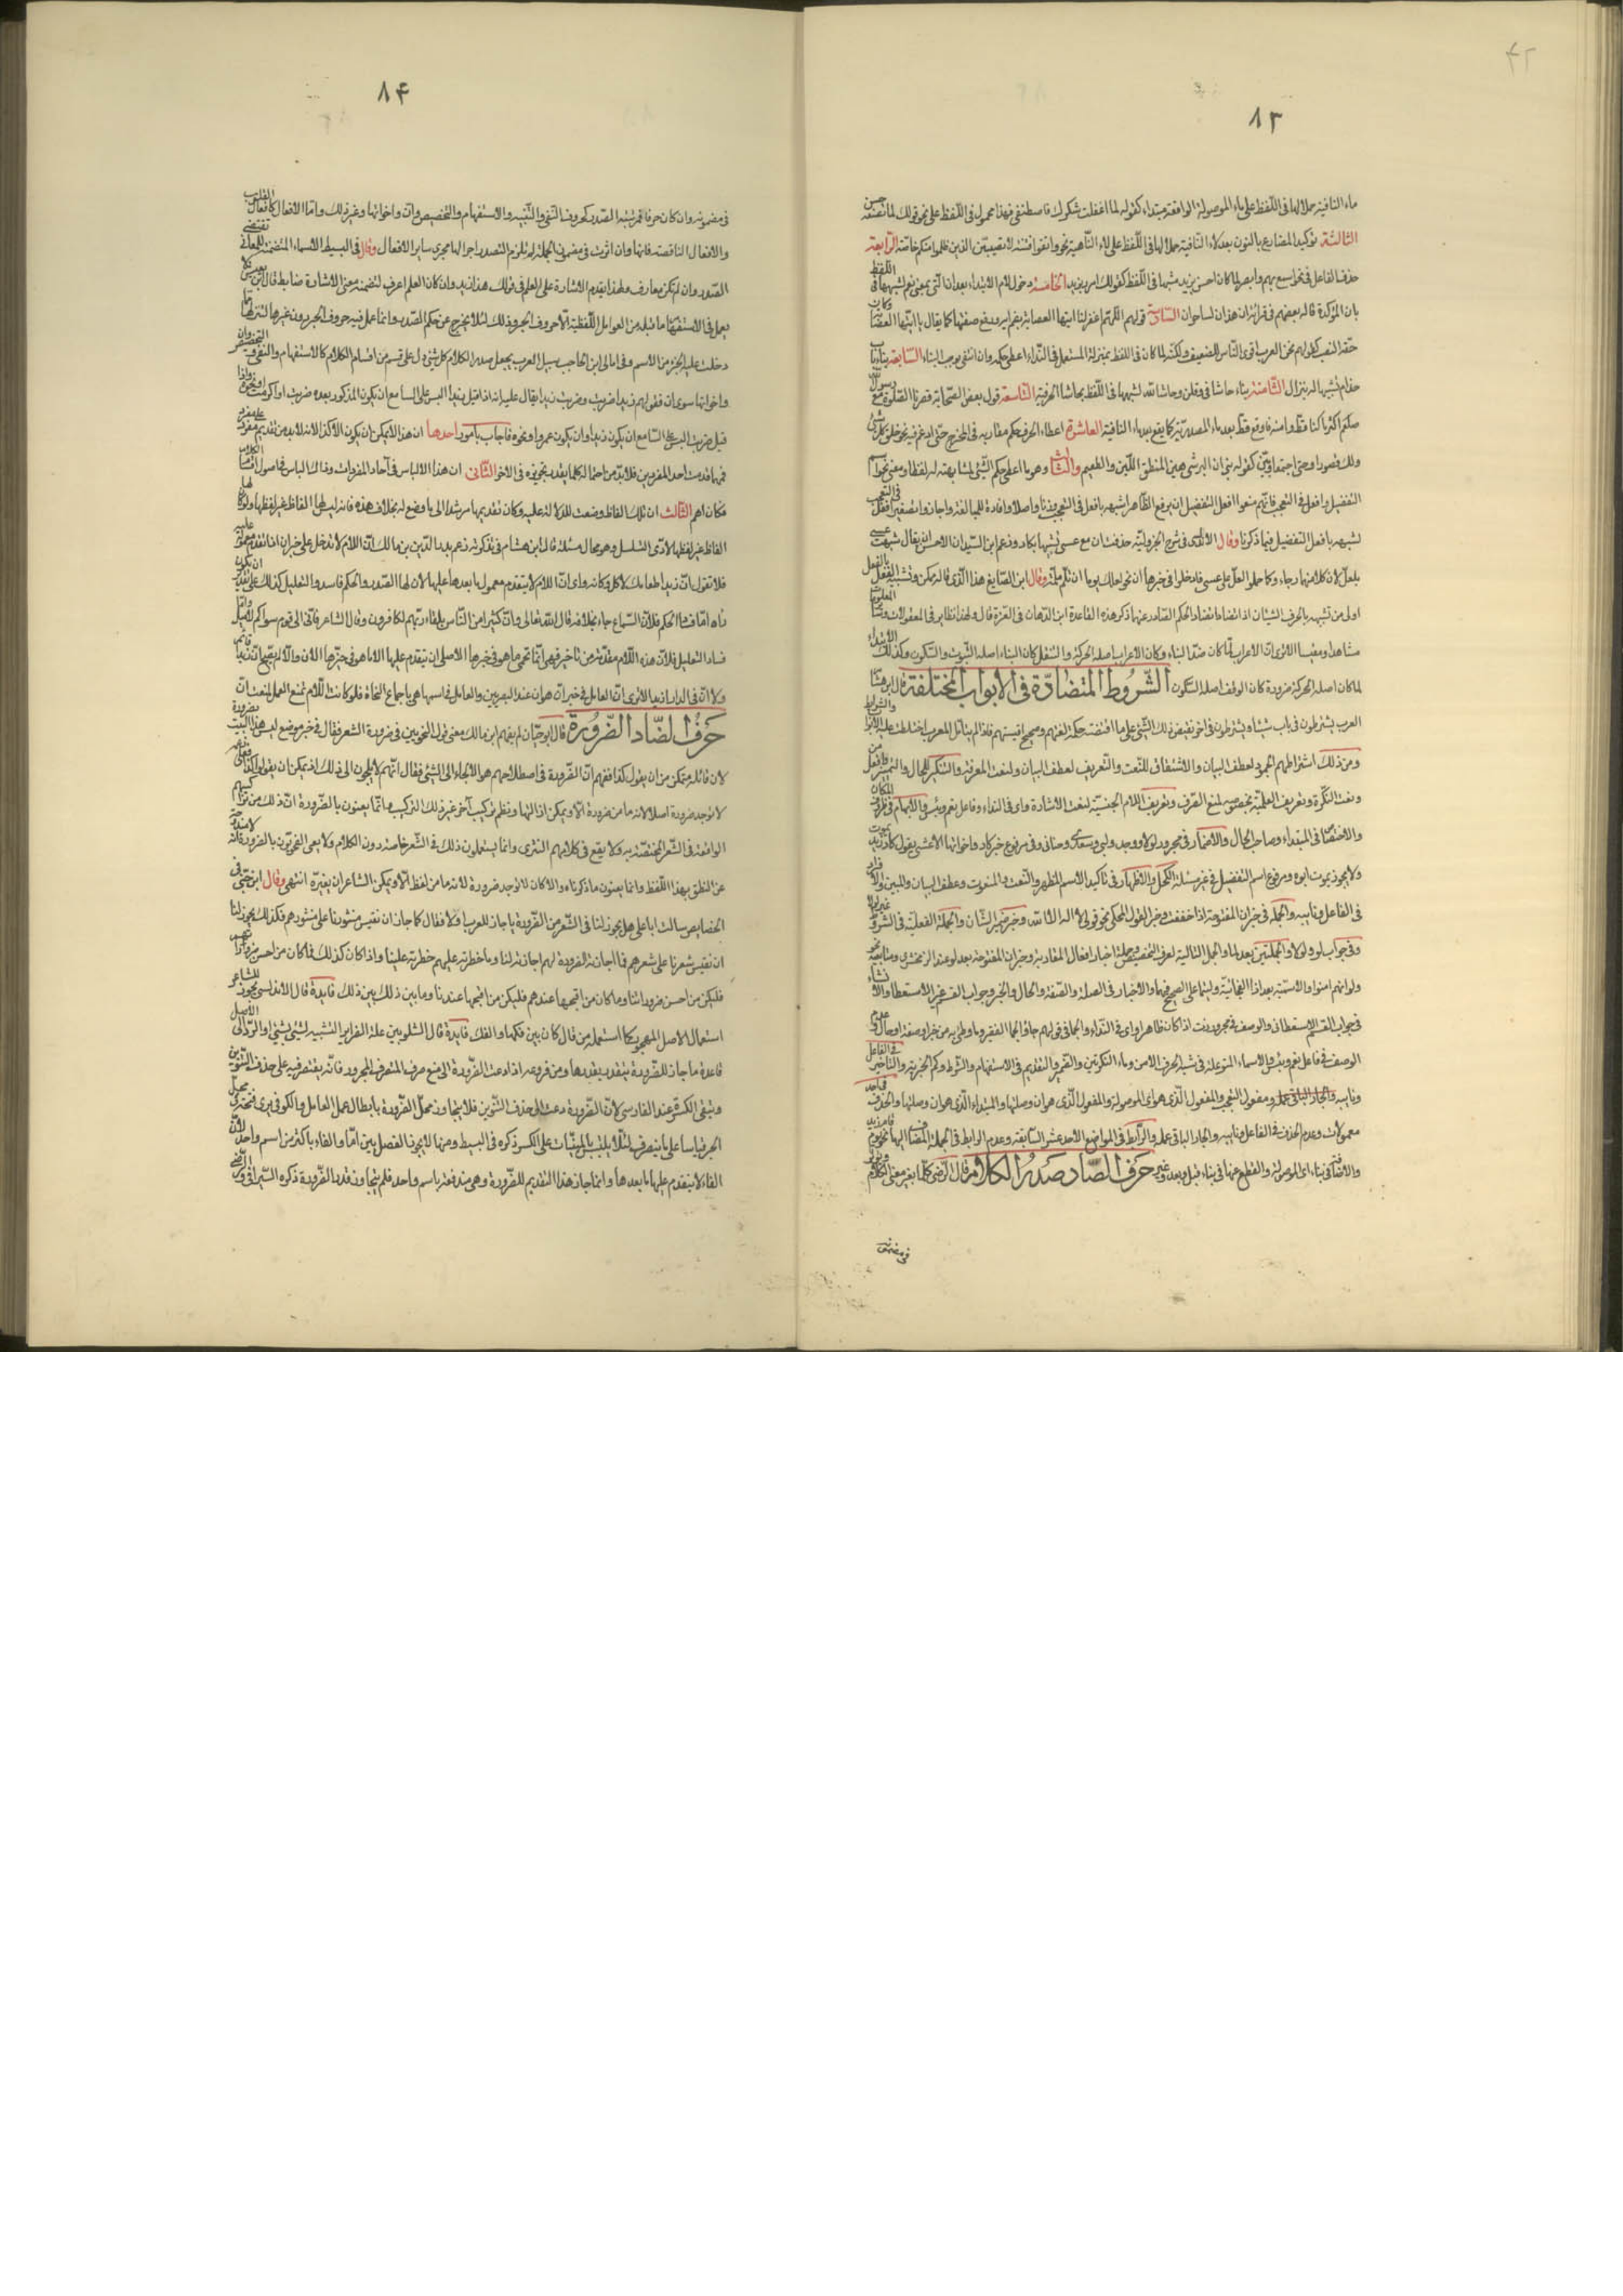 ٨٣
ماء النافية حملا لها فى اللفظ على ماء الموصولة الواقعة مبتداء كقوله لما اغفلت شكرك فاصطنعنى فهذا محمول فى اللفظ على نحو قولك لما تصنعه حسن
الثالثة توكيد المضارع بالنون بعد لاء النافية حملا لها فى اللفظ على لاء الناهية نحو واتقوا فتنة لا تصيبن الذين ظلموا منكم خاصة الرابعة
حذف الفاعل فى نحو اسمع بهم وابصر لما كان احسن بزيد مشبها فى اللفظ كقولك امرر بزيد الخامسة دخول لام الابتداء بعد ان التى بمعنى نعم لشبهها فى اللفظ
بان المؤكدة قاله بعضهم فى قراءة ان هذان لساحران السادسة قولهم اللهم اغفر لنا ايتها العصابة بضم اية ورفع صفتها كما يقال يا ايتها العصابة وكان
حقه النصب كقولهم نحن العرب اقرى الناس للضيف ولكنه لما كان فى اللفظ بمنزلة المستعمل فى النداء اعطى حكمه وان انتفى موجب البناء السابعة بناء باب
حذام لشبهها له بنزال الثامنة بناء حاشا فى وقلن حاشا لله لشبهها فى اللفظ بحاشا الحرفية التاسعة قول بعض الصحابة قصرنا الصلوة مع رسول الله
صلعم اكثر ما كنا قط وامنه فاوقع قط بعد ماء المصدرية كما يقع بعد ماء النافية العاشرة اعطاء الحرف حكم مقاربه فى المخرج حتى ادغم فيه نحو خلق كل شئ
ولك قصورا وحتى اجتمعا رويين كقوله بنى ان البر شئ هين المنطق اللين والطعيم والثالث وهو ما اعطى حكم الشئ لمشابهته له لفظا ومعنى نحو اسم
التفضيل وافعل فى التعجب فانهم منعوا افعل التفضيل ان يرفع الظاهر لشبهه بافعل فى التعجب وزنا واصلا وافادة للمبالغة واجازوا تصغير افعل فى التعجب
لشبهه بافعل التفضيل فيما ذكرنا وقال الابدى فى شرح الجزولية حذفت ان مع عسى تشبيها بكاد وزعم ابن السيد ان الاحسن ان يقال شبهت عسى
بلعل لان كلا منهما رجاء وكما حملوا لعل على عسى فادخلوا فى خبرها ان نحو لعلك يوما ان تلم ملمة وقال ابن الصايغ هذا الذى قاله ممكن وتشبيه الفعل بالفعل
اولى من تشبيهه بالحرف الشيئان اذا تضادا تضاد الحكم الصادر عنهما ذكر هذه القاعدة ابن الدهان فى الغرة قال ولهذا نظاير فى المعقولات وفى المعلومات
مشاهدا ومقيسا الا ترى ان الاعراب لما كان ضد البناء وكان الاعراب اصله الحركة والتنقل كان البناء اصله الثبوت والسكون وكذلك الابتداء
لما كان اصله الحركة ضرورة كان الوقف اصله السكون الشروط المتضادة فى الابواب المختلفة قال ابن هشام
العرب يشترطون فى باب شيئا ويشترطون فى اخر نقيض ذلك الشئ على ما اقتضته حكمة لغتهم وصحيح اقيستهم فاذا لم يتامل المعرب اختلطت عليه الابواب والشرايط
ومن ذلك اشتراطهم الجمود لعطف البيان والاشتقاق للنعت والتعريف لعطف البيان ولنعت المعرفة والتنكير للحال والتمييز وافعل من
ونعت النكرة وتعريف العلمية بخصوصه لمنع الصرف وتعريف اللام الجنسية لنعت الاشارة واى فى النداء وفاعل نعم وبئس والابهام فى ظروف المكان
والاختصاص فى المبتداء وصاحب الحال والاضمار فى مجرور لولا ووحد ولبى وسعدى وحنانى وفى مرفوع خبر كاد واخواتها الا عسى يقول كاد زيد يموت
ولا يجوز يموت ابوه ومرفوع اسم التفضيل فى غير مسئلة الكحل والاظهار فى تاكيد الاسم المظهر والنعت والمنعوت وعطف البيان والمبين والافراد
فى الفاعل ونايبه والجملة فى خبر ان المفتوحة اذا خففت وخبر القول المحكى نحو قولى لا اله الا الله وخبر ضمير الشان والجملة الفعلية فى الشرط غير لولا
وفى جواب لو ولولا والجملتين بعد لما والجمل التالية لحرف التحضيض وجملة اخبار افعال المقاربة وخبر ان المفتوحة بعد لو عند الزمخشرى ومتابعيه نحو
ولو انهم امنوا والاسمية بعد اذا الفجائية وليتما على الصحيح فيهما والاخبار فى الصلة والصفة والحال والخبر وجواب القسم غير الاستعطافى والانشاء
فى جواب القسم الاستعطافى والوصف فى مجرور رب اذا كان ظاهرا واى فى النداء والجماء فى قولهم جاؤا الجماء الغفير وما وطئ به من خبر او صفة او حال وعدم
الوصف فى فاعل نعم وبئس والاسماء المتوغلة فى شبه الحرف الا من وماء النكرتين والضمير والتقديم فى الاستفهام والشرط وكم الخبرية والتاخير فى الفاعل
ونايبه والجار الباقى عمله ومفعول التعجب والمفعول الذى هو اى الموصولة والمفعول الذى هو ان وصلتها والمبتداء الذى هو ان وصلتها والحذف فى احد
معمولات وعدم الحذف فى الفاعل ونايبه والجار الباقى عمله والرابط فى المواضع الاحد عشر السابقة وعدم الرابط فى الجملة المضاف اليها نحو يوم قام زيد
والاضافة فى بناء اى الموصولة والقطع عنها فى بناء قبل وبعد وغير حرف الصاد صدر الكلام قال الرضى كلما يغير معنى الكلام ويؤثر
فى مضمونه
٨٤
فى مضمونه وان كان حرفا فمرتبته الصدر كحروف النفى والتنبيه والاستفهام والتحضيض وان واخواتها وغير ذلك واما الافعال كافعال القلوب
والافعال الناقصة فانها وان اثرت فى مضمون الجملة لم تلزم التصدر اجراء لها مجرى ساير الافعال وقال فى البسيط الاسماء المتضمنة للمعانى تقتضى
الصدر وان لم تكن معارف ولهذا يقدم الاشارة على العلم فى قولك هذا زيد وان كان العلم اعرف لتضمنه معنى الاشارة ضابط قال ابن يعيش لا
يعمل فى الاستفهام ما قبله من العوامل اللفظية الا حروف الجر وذلك لئلا يخرج عن حكم الصدر وانما عمل فيه حروف الجر دون غيرها لتنزلها مما
دخلت عليه الجزء من الاسم وفى امالى ابن الحاجب سبيل العرب يجعل صدر الكلام كل شئ دل على قسم من اقسام الكلام كالاستفهام والنفى والتحضيض وان
واخواتها سوى ان فقولهم زيدا ضربت وضربت زيدا يقال عليه انه اذا قيل زيدا البس على السامع ان يكون المذكور بعده ضربت او اكرمت او نحوه واذا
قيل ضربت البس على السامع ان يكون زيدا وان يكون عمروا ونحوه فاجاب بامور احدها ان هذا لا يمكن ان يكون الا كذا لانه لابد من تقديم مفرد على مفرد
فمهما قدمت احد المفردين فلابد من احتماله كلما يقدر تجويزه فى الاخر الثانى ان هذا الالباس فى آحاد المفردات وذاك الباس فى اصول اقسام الكلام
فكان اهم الثالث ان تلك الفاظ وضعت للدلالة عليه وكان تقديمها مرشدا الى ما وضع له بخلاف هذه فانه ليس لها الفاظ غير لفظها ولو كان لها
الفاظ غير لفظها لادى التسلسل وهو محال مسئلة قال ابن هشام فى تذكرته زعم بدر الدين بن مالك ان اللام لا تدخل على خبر ان اذا تقدم معموله عليه
فلا تقول ان زيدا طعامك لآكل وكانه راى ان اللام لا يتقدم معمول ما بعدها عليها لان لها الصدر والحكم فاسد والتعليل كذلك على تقدير ان تكون
راه اما فساد الحكم فلان السماع جاء بخلافه قال الله تعالى وان كثيرا من الناس بلقاء ربهم لكافرون وقال الشاعر فانى الى قوم سواكم لاميل واما
فساد التعليل فلان هذه اللام مقدمة من تاخير فهى انما تحمى ما هو فى خبرها الاصلى ان يتقدم عليها الا ما هو فى خبرها الان والا لم يصح ان زيدا قائم
ولا ان فى الدار لزيدا الا ترى ان العامل فى خبر ان هو ان عند البصريين والعامل فى اسمها هى باجماع النحاة فلو كانت اللام تمنع العمل لمنعت ان
حرف الضاد الضرورة قال ابو حيان لم يفهم ابن مالك معنى قول النحويين فى ضرورة الشعر فقال فى غير موضع ليس هذا البيت بضرورة
لان قائله متمكن من ان يقول كذا ففهم ان الضرورة فى اصطلاحهم هو الالجاء الى الشئ فقال انهم لا يلجؤن الى ذلك اذ يمكن ان يقولوا كذا فعلى
لا توجد ضرورة اصلا لانه ما من ضرورة الا ويمكن ازالتها ونظم تركيب آخر غير ذلك التركيب وانما يعنون بالضرورة ان ذلك من تراكيبهم
الواقعة فى الشعر المختصة به ولا يقع فى كلامهم النثرى وانما يستعملون ذلك فى الشعر خاصة دون الكلام ولا يعنى النحويون بالضرورة انه لا مندوحة
عن النطق بهذا اللفظ وانما يعنون ما ذكرناه والا كان لا توجد ضرورة لانه ما من لفظ الا ويمكن الشاعر ان يغيره انتهى وقال ابن جنى فى
الخصايص سالت ابا على هل يجوز لنا فى الشعر من الضرورة ما جاز للعرب او لا فقال كما جاز ان نقيس منثورنا على منثورهم فكذلك يجوز لنا
ان نقيس شعرنا على شعرهم فما اجازته الضرورة لهم اجازته لنا وما حظرته عليهم حظرته علينا واذا كان كذلك فما كان من احسن ضروراتهم
فليكن من احسن ضروراتنا وما كان من اقبحها عندهم فليكن من اقبحها عندنا وما بين ذلك بين ذلك فايدة قال الاندلسى يجوز للشاعر
استعمال الاصل المهجور كما استعمله من قال كان بين فكها والفك فايدة قال الشلوبين علة الضراير التشبيه لشئ بشئ او الرد الى الاصل
قاعدة ما جاز للضرورة يتقدر بقدرها ومن فروعه اذا دعت الضرورة الى منع صرف المنصرف المجرور فانه يقتصر فيه على حذف التنوين
وتبقى الكسرة عند الفارسى لان الضرورة دعت الى حذف التنوين فلا يتجاوز محل الضرورة بابطال عمل العامل والكوفى يرى فتحه فى محل
الجر قياسا على ما ينصرف لئلا يلتبس بالمبنيات على الكسر ذكره فى البسيط ومنها لا يجوز الفصل بين اما والفاء باكثر من اسم واحد لان
الفاء لا يتقدم عليها ما بعدها وانما جاز هذا التقديم للضرورة وهى مندفعة باسم واحد فلم يتجاوز قدر الضرورة ذكره السيرافى والرضى